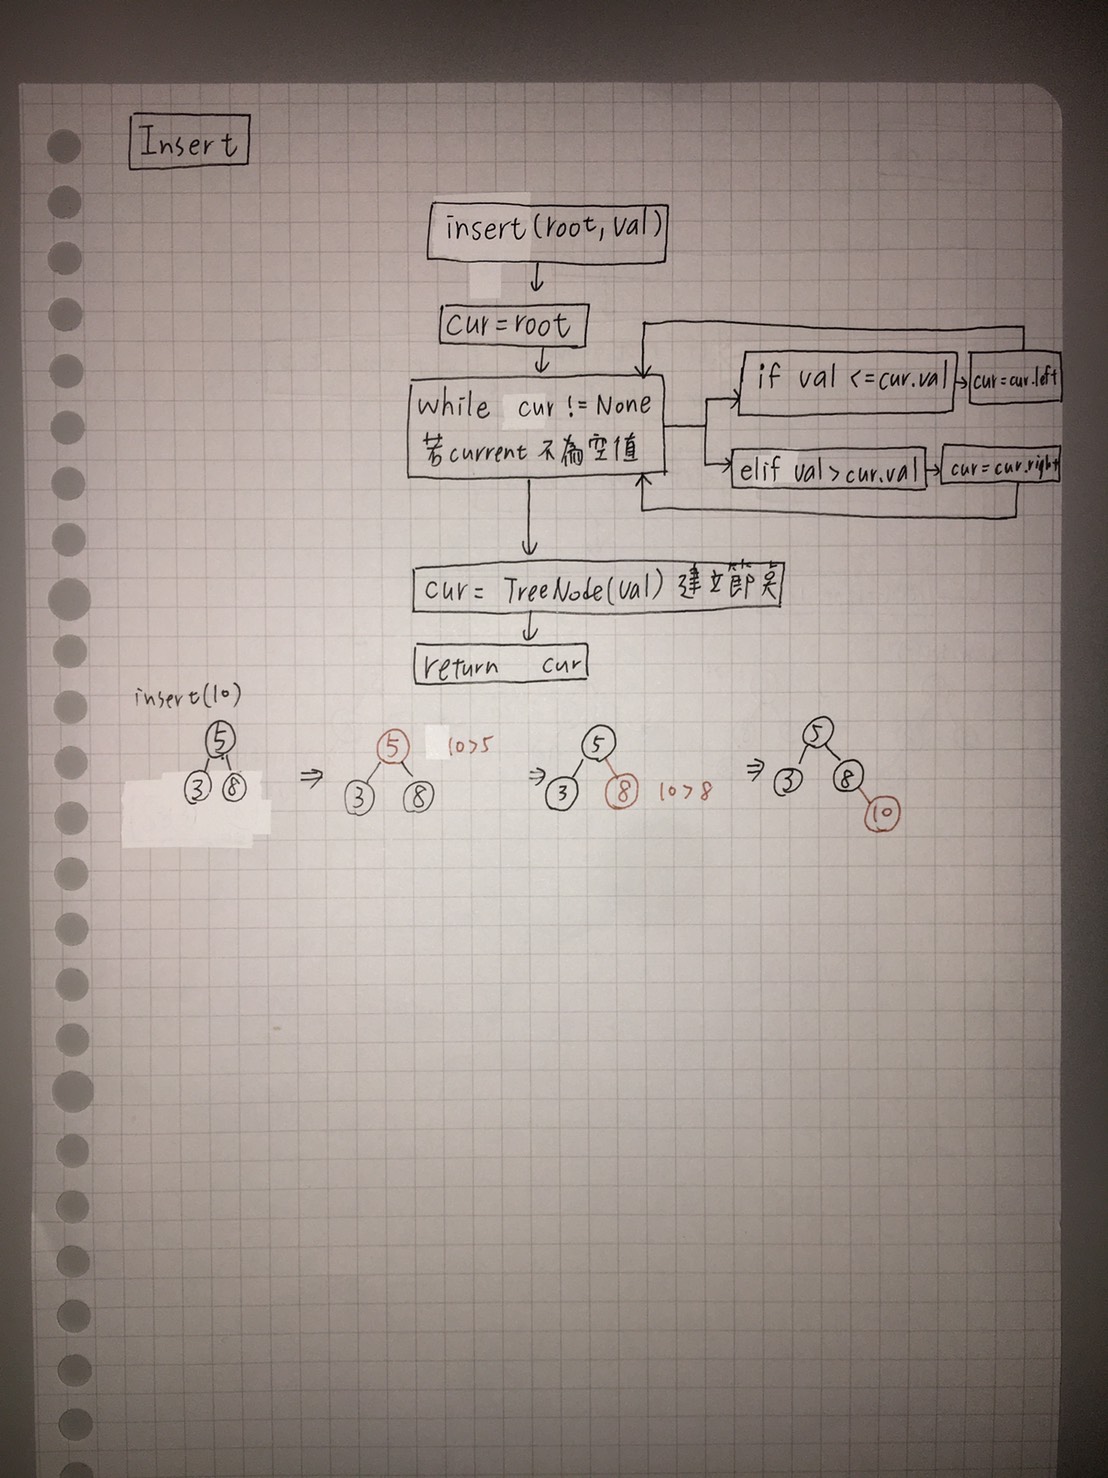 Insert
insert(root, val)
cur = root
while cur != None
若current 不為空值
if val <= cur.val
cur = cur.left
elif val > cur.val
cur = cur.right
cur = TreeNode(val) 建立節點
return cur
insert(10)
5
3 8
⇒
5 10>5
3 8
⇒
5
3 8 10>8
⇒
5
3 8
10